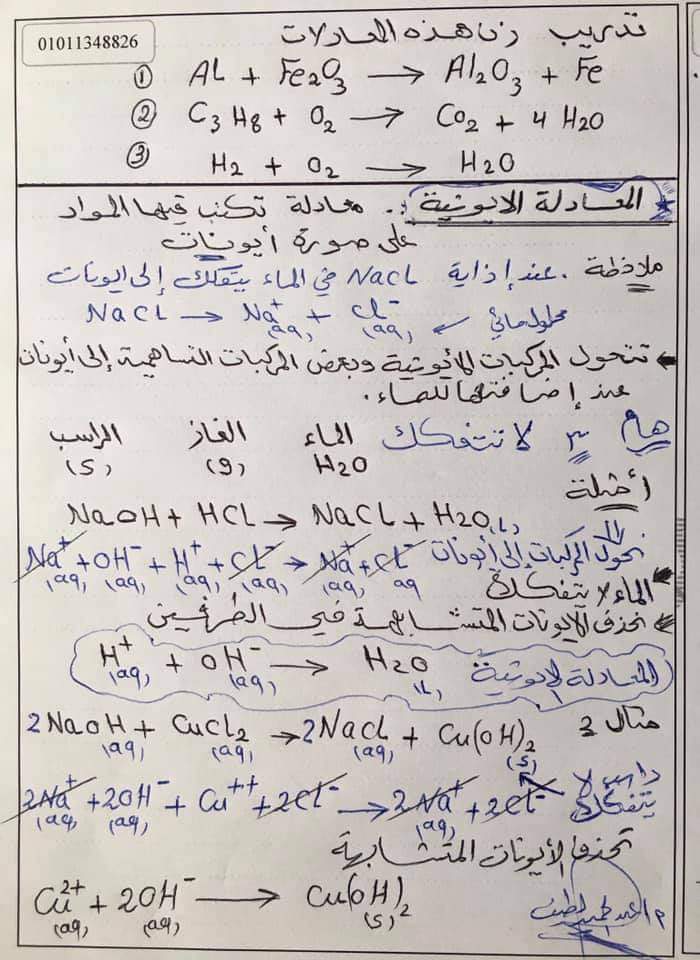 01011348826
تدريب زن هذه المعادلات
① AL + Fe2O3 → Al2O3 + Fe
② C3H8 + O2 → CO2 + 4 H2O
③ H2 + O2 → H2O
المعادلة الايونية :. معادلة تكتب فيها المواد
على صورة أيونات
ملاحظة . عند إذابة NaCL في الماء يتفكك إلى ايونات
NaCL → Na+(aq) + Cl-(aq) محلول مائي
تتحول المركبات الأيونية وبعض المركبات التساهمية إلى أيونات
عند إضافتها للماء .
هام لا تتفكك الماء H2O الغاز (g) الراسب (s)
أمثلة
NaOH + HCL → NaCL + H2O(L)
نحول المركبات إلى أيونات Na+(aq) + OH-(aq) + H+(aq) + CL-(aq) → Na+(aq) + CL- aq
الماء لا يتفكك
نحذف الايونات المتشابهة في الطرفين
H+(aq) + OH-(aq) → H2O(L) المعادلة الايونية
مثال 2 2NaOH(aq) + CuCL2(aq) → 2NaCL(aq) + Cu(OH)2(s)
راسب لا
يتفكك 2Na+(aq) + 2OH-(aq) + Cu++ + 2CL- → 2Na+(aq) + 2CL-
تحذف الأيونات المتشابهة
Cu2+(aq) + 2OH-(aq) → Cu(OH)2(s)